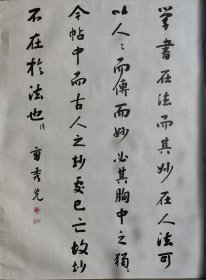 学書在法而其妙在人法可
以人〻而傳而妙必其胸中之獨
今帖中而古人之妙處已亡故妙
不在於法也